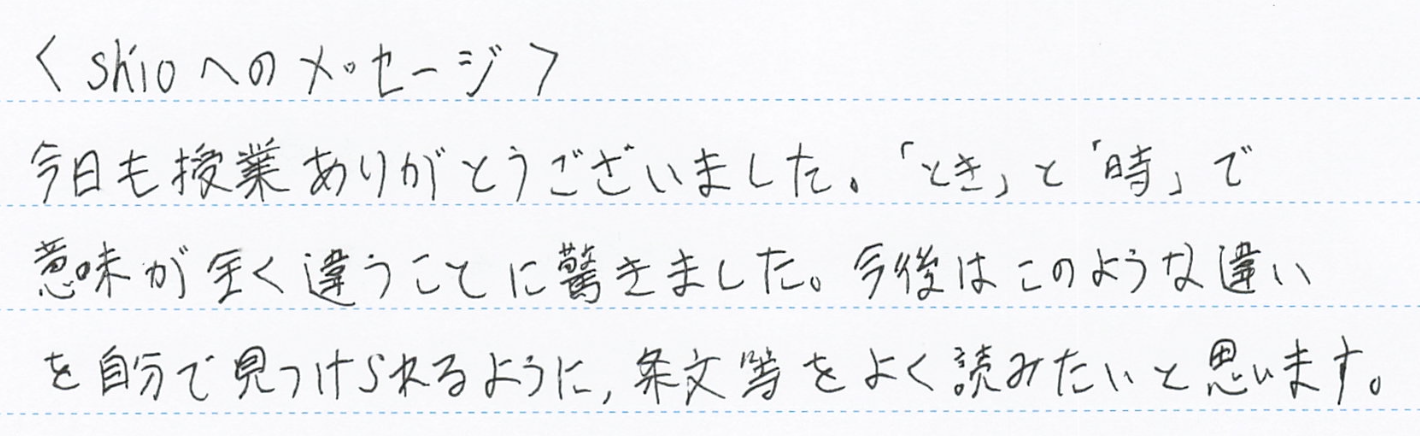 <shioへのメッセージ>
今日も授業ありがとうございました。「とき」と「時」で
意味が全く違うことに驚きました。今後はこのような違い
を自分で見つけられるように,条文等をよく読みたいと思います。